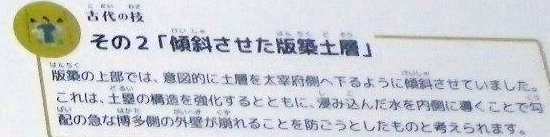 古代の技
その2「傾斜させた版築土層」
版築の上部では、意図的に土層を太宰府側へ下るように傾斜させていました。
これは、土塁の構造を強化するとともに、浸み込んだ水を内側に導くことで勾
配の急な博多側の外壁が崩れることを防ごうとしたものと考えられます。